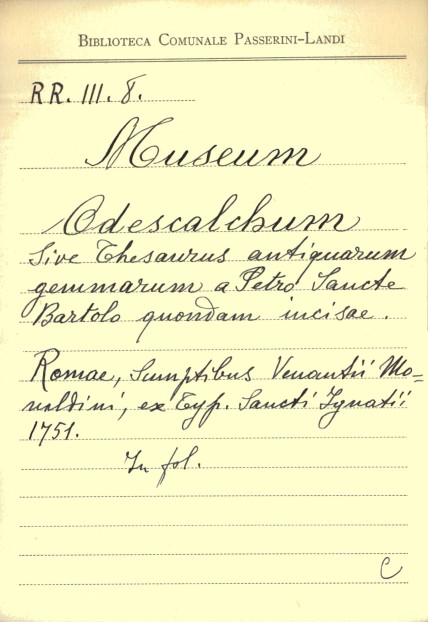 BIBLIOTECA COMUNALE PASSERINI-LANDI
RR. III. 8.
Museum
Odescalchum
Sive Thesaurus antiquarum
gemmarum a Petro Sancte
Bartolo quondam incisae.
Romae, Sumptibus Venantii Mo=
naldini, ex Typ. Sancti Ignatii
1751.
In fol.
C